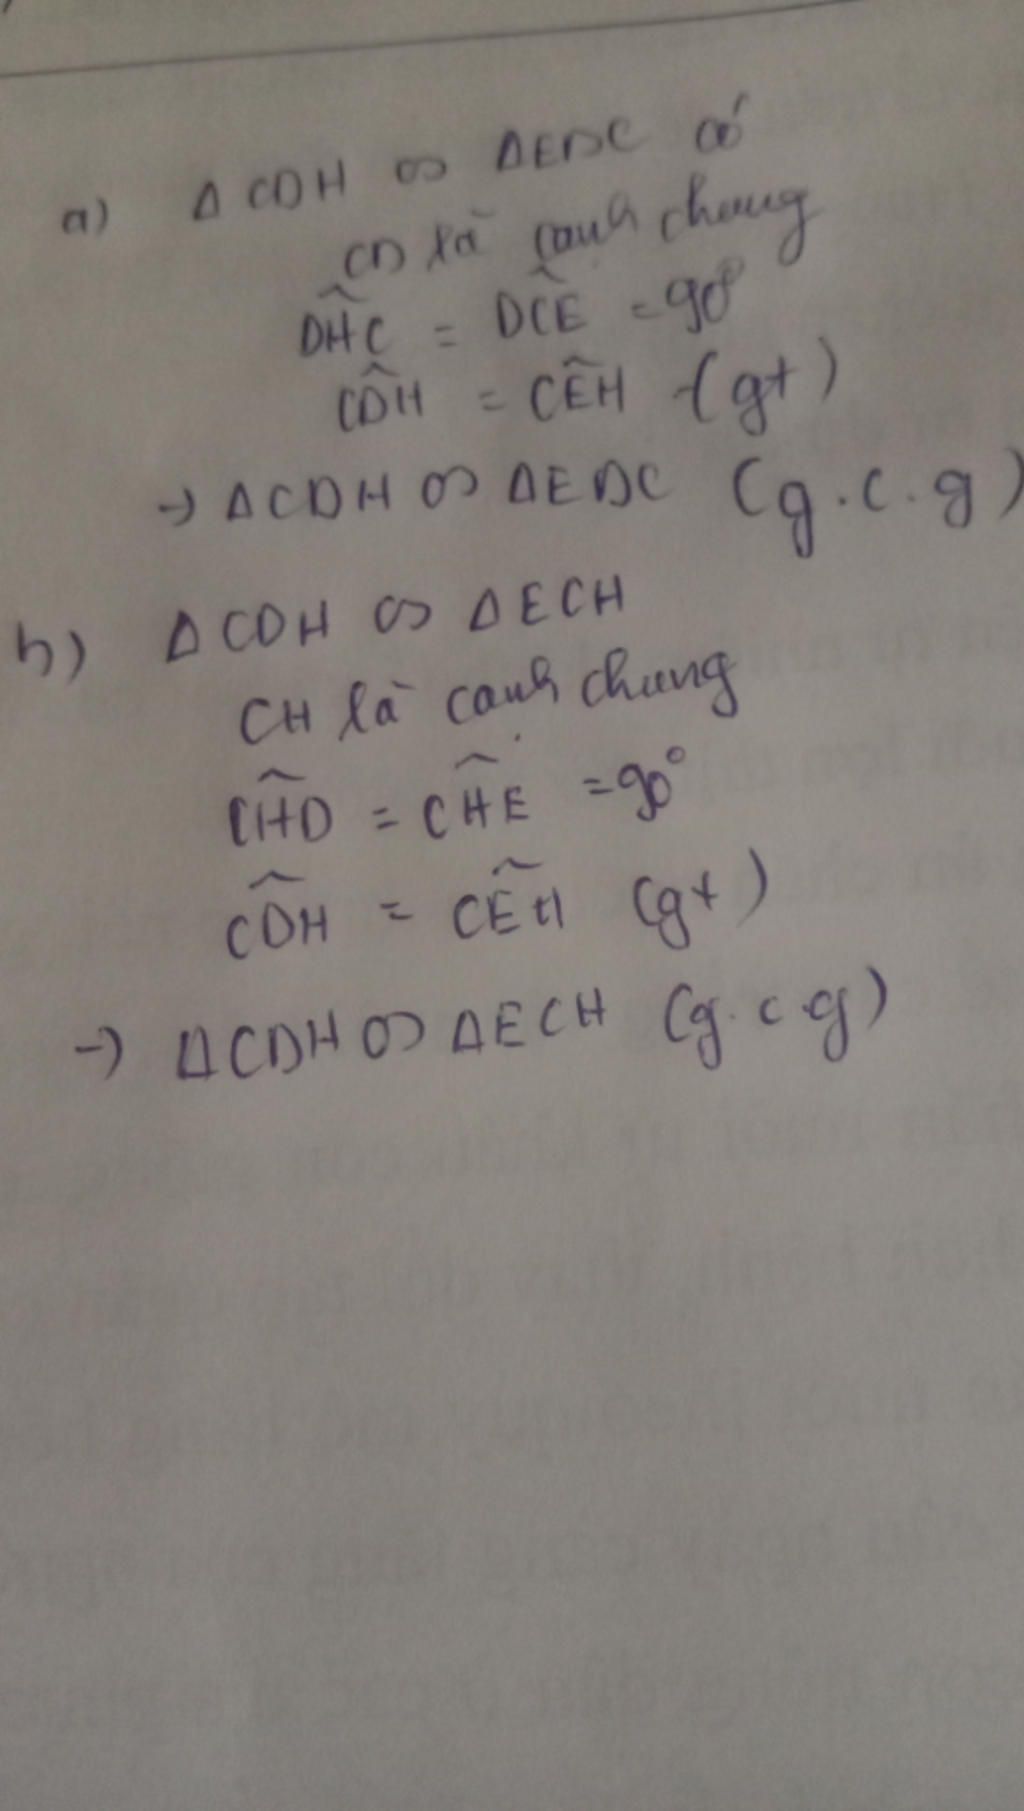 a) Δ CDH ∽ ΔEDC có
CD là cạnh chung
DHC = DCE = 90°
CDH = CEH (gt)
→ ΔCDH ∽ ΔEDC (g.c.g)
b) ΔCDH ∽ ΔECH
CH là cạnh chung
CHD = CHE = 90°
CDH = CEH (gt)
→ ΔCDH ∽ ΔECH (g.c.g)